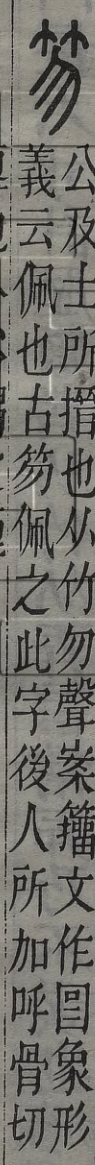 笏
公及士所搢也从竹勿聲案籒文作囘象形
義云佩也古笏佩之此字後人所加呼骨切